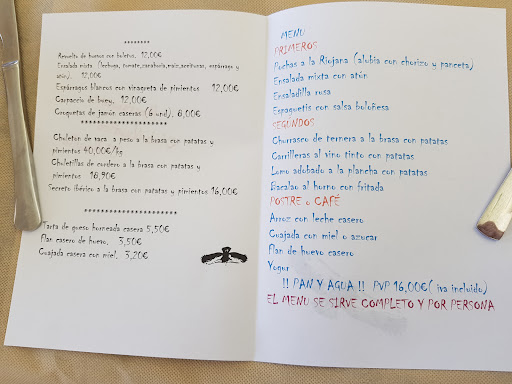 ********
Revuelto de huevos con boletus. 12,00€
Ensalada mixta (lechuga, tomate,zanahoria,maiz,aceitunas, espárrago y
atún). 12,00€
Espárragos blancos con vinagreta de pimientos 12,00€
Carpaccio de buey. 12,00€
Croquetas de jamón caseras (6 und). 8,00€
*********************
Chuleton de vaca a peso a la brasa con patatas y
pimientos 40,00€/kg
Chuletillas de cordero a la brasa con patatas y
pimientos 18,90€
Secreto ibérico a la brasa con patatas y pimientos 16,00€
*********************
Tarta de queso horneada casera 5,50€
Flan casero de huevo. 3,50€
Cuajada casera con miel. 3,20€
MENU
PRIMEROS
Pochas a la Riojana (alubia con chorizo y panceta)
Ensalada mixta con atún
Ensaladilla rosa
Espaguetis con salsa boloñesa
SEGUNDOS
Churrasco de ternera a la brasa con patatas
Carrilleras al vino tinto con patatas
Lomo adobado a la plancha con patatas
Bacalao al horno con fritada
POSTRE o CAFÉ
Arroz con leche casero
Cuajada con miel o azucar
Flan de huevo casero
Yogur
!! PAN Y AGUA !! PVP 16,00€( iva incluido)
EL MENU SE SIRVE COMPLETO Y POR PERSONA